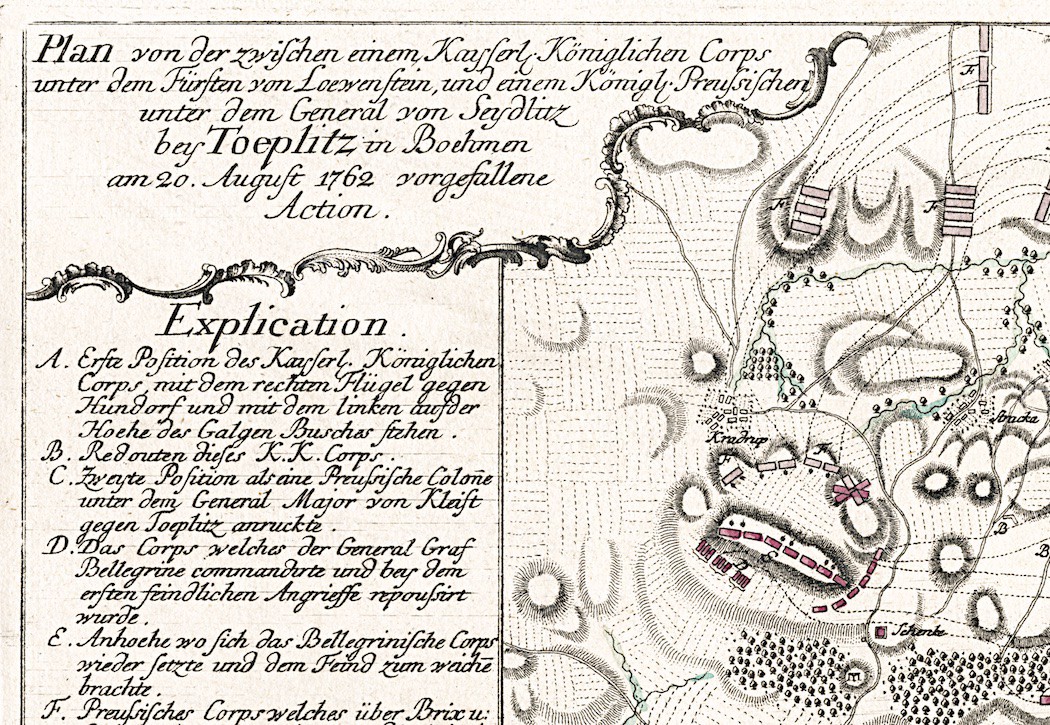 Plan von der zwischen einem Kayserl. Königlichen Corps
unter dem Fürsten von Loewenstein, und einem Königl. Preussischen
unter dem General von Seydlitz
bey Toeplitz in Boehmen
am 20. August 1762 vorgefallene
Action.
Explication.
A. Erste Position des Kayserl. Königlichen
Corps, mit dem rechten Flügel gegen
Hundorf und mit dem linken auf der
Hoehe des Galgen Busches stehen.
B. Redouten dieses K.K. Corps.
C. Zweyte Position als eine Preussische Colon̄e
unter dem General Major von Kleist
gegen Toeplitz anruckte.
D. Das Corps welches der General Graf
Bellegrine commandirte und bey dem
ersten feindlichen Angrieffe repoussirt
wurde.
E. Anhoehe wo sich das Bellegrinische Corps
wieder setzte und dem Feind zum weichē
brachte.
F. Preussisches Corps welches über Brix u:
F
F
F
Kradrup
Strucka
F
F
B
B
D
C
Schenke
E